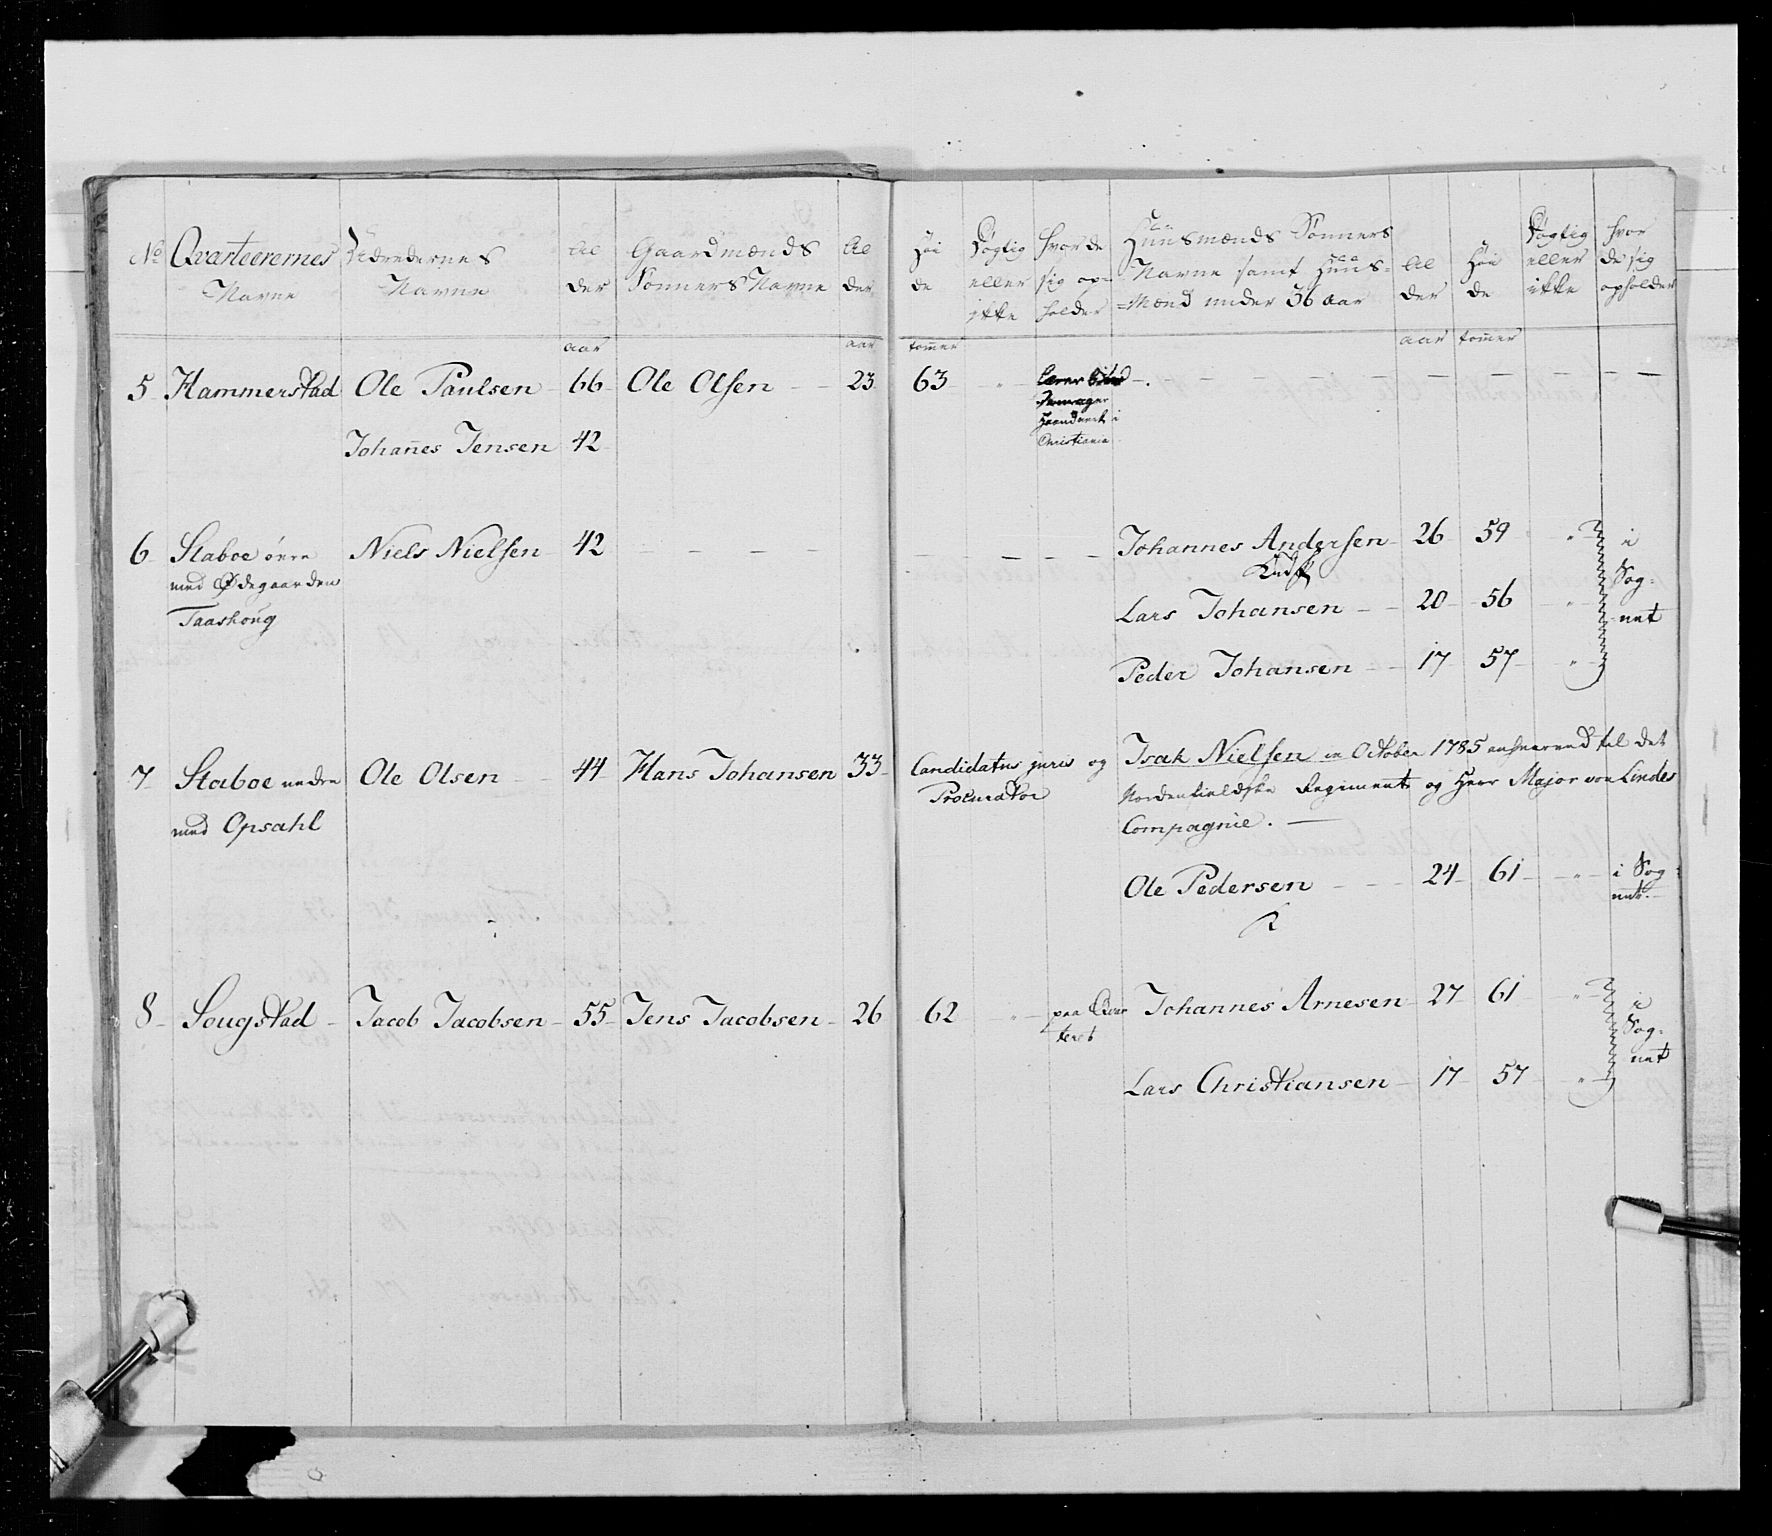 No Qvarteerernes Navne
Udredernes Navne
Al der
Gaardmænds Sønners Navne
Al der
Høi de
Døgtig eller ikke
hvor de sig op= holder
Huusmænds Sønners Navne samt Huus= =Mænd under 36 aar
Al der
Høi de
Døgtig eller ikke
hvor de sig opholder
aar aar tommer aar tommer
5 Hammerstad Ole Paulsen 66 Ole Olsen 23 63
Haandverk i
Christiania
Johanes Jensen 42
6 Staboe øvre Niels Nielsen 42 Johannes Andersen 26 59 " i
med Ødegaarden
Taashoug Lars Johansen 20 56 " Sog=
net
Peder Johansen 17 57 "
7 Staboe nedre Ole Olsen 44 Hans Johansen 33 Candidatus juris og
Procurator
med Opsahl
Isak Nielsen October 1785 til det
Nordenfieldske Regiment og Herr Major von Lindes
Compagnie.
Ole Pedersen 24 61 " i Sog=
net.
R
8 Sougstad Jacob Jacobsen 55 Jens Jacobsen 26 62 " paa Qvar
teret
Johannes Arnesen 27 61 " i
Sog=
net
Lars Christiansen 17 57 "